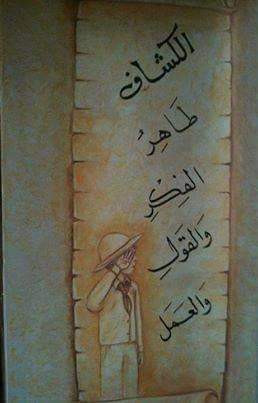 الكشاف
طَاهِرُ
الفِكْرِ
وَالقَولِ
وَالعَمَل